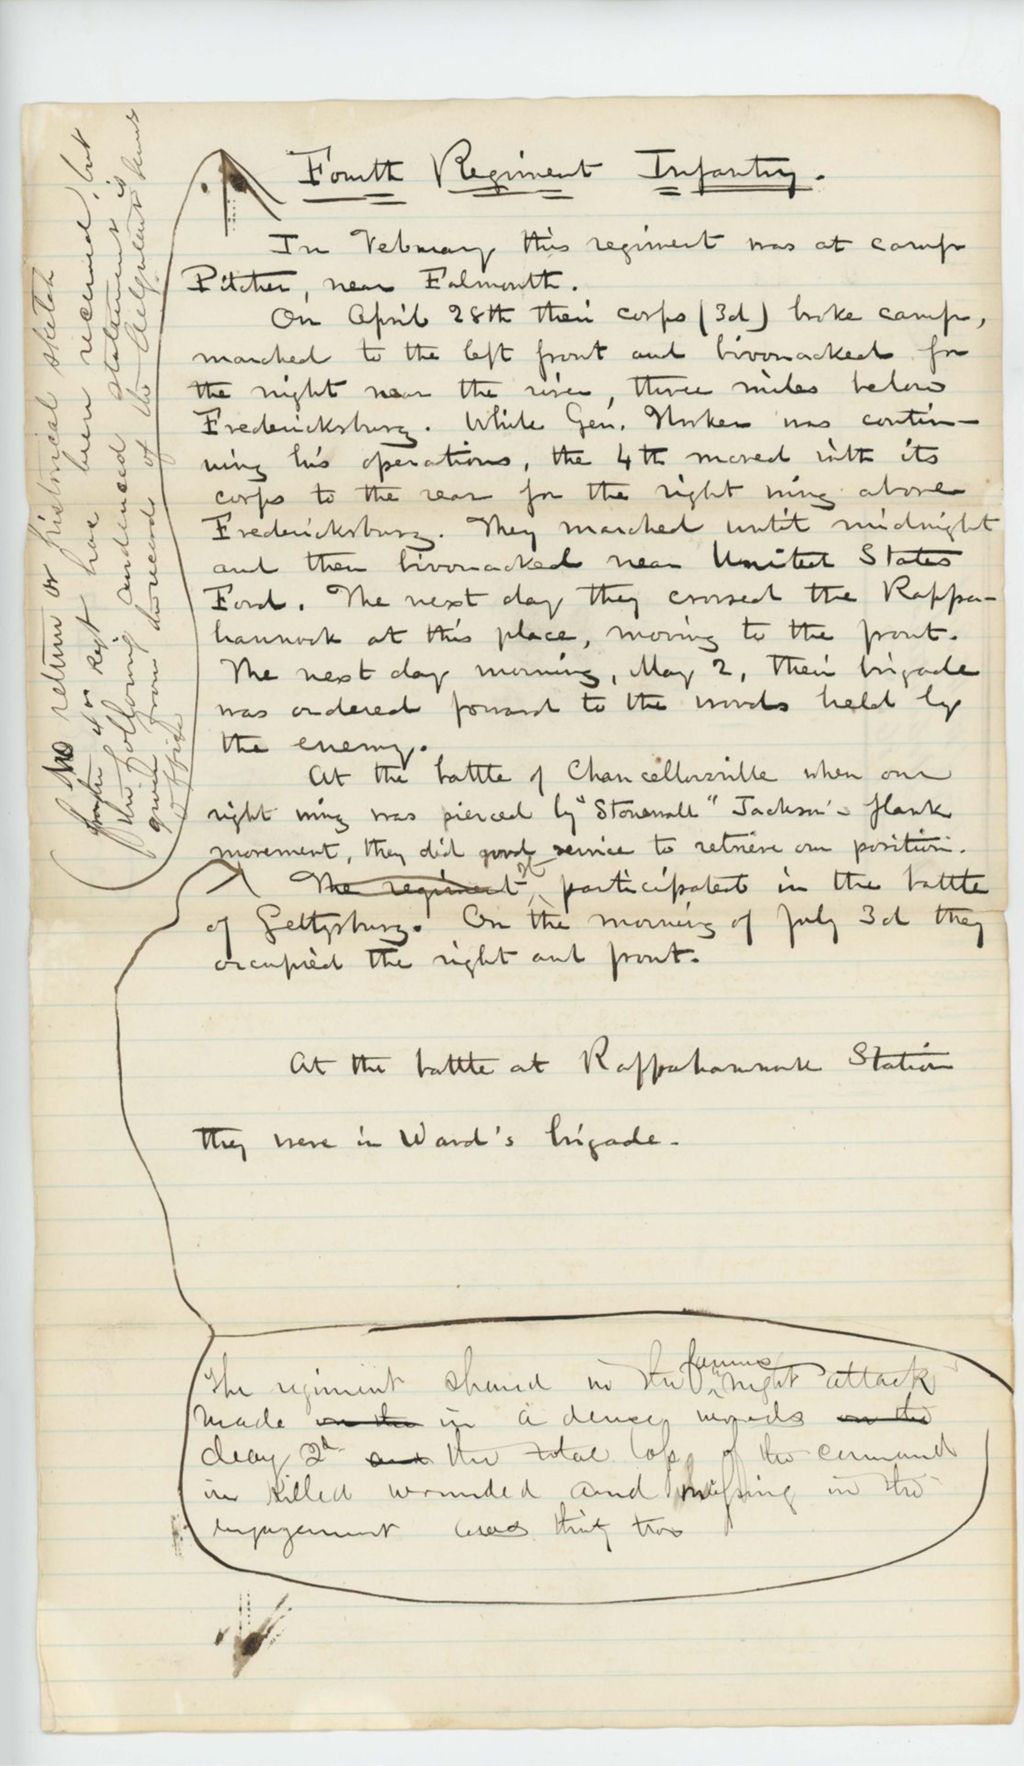 Fourth Regiment Infantry.
No return or historical sketch
from the 4th Regt have been received, but
the following condensed statement is
given from the record of the Adjutant Genls
Office
In February this regiment was at camp
Pitcher, near Falmouth.
On April 28th their corps (3d) broke camp,
marched to the left front and bivouacked for
the night near the river, three miles below
Fredericksburg. While Gen. Hooker was contin-
uing his operations, the 4th moved with its
corps to the rear for the right wing above
Fredericksburg. They marched until midnight
and then bivouacked near United States
Ford. The next day they crossed the Rappa-
hannock at this place, moving to the front.
The next day morning, May 2, their brigade
was ordered forward to the woods held by
the enemy.
At the battle of Chancellorsville when our
right wing was pierced by "Stonewall" Jackson's flank
movement, they did good service to retrieve our position.
The regiment It participated in the battle
of Gettysburg. On the morning of July 3d they
occupied the right and front.
At the battle at Rappahannock Station
they were in Ward's brigade.
The regiment shared in the famous night attack
made on the in a dense woods on the
day 2d and the total loss of the command
in killed wounded and missing in the
engagement was thirty two